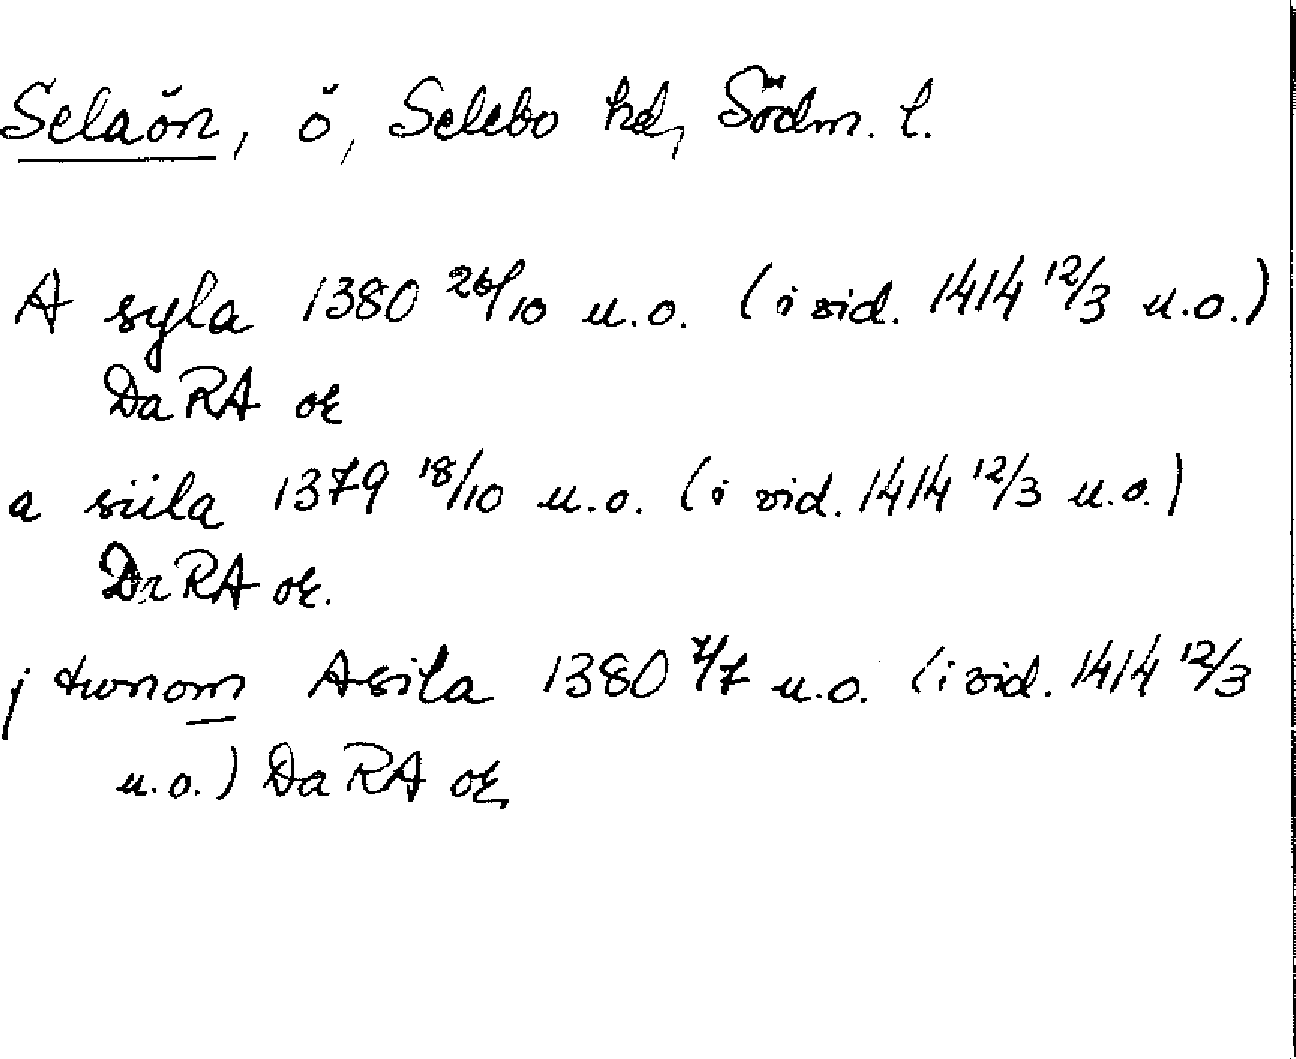 Selaön, ö, Selebo hd, Södm. l.
A syla 1380 26/10 u.o. (i vid. 1414 12/3 u.o.)
DaRA or
a siila 1379 18/10 u.o. (i vid. 1414 12/3 u.o.)
DaRA or.
j tunom Asila 1380 7/7 u.o. (i vid. 1414 12/3
u.o.) DaRA or